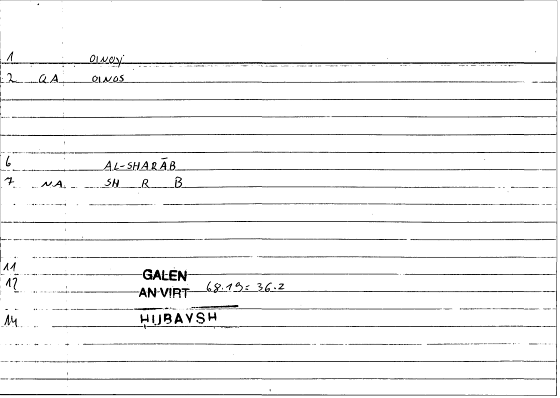 1 OINOY
2 QA OINOS
6 AL-SHARĀB
7 NA SH R B
11 GALEN
12 AN VIRT 68.19 = 36.2
14 ḤUBAYSH